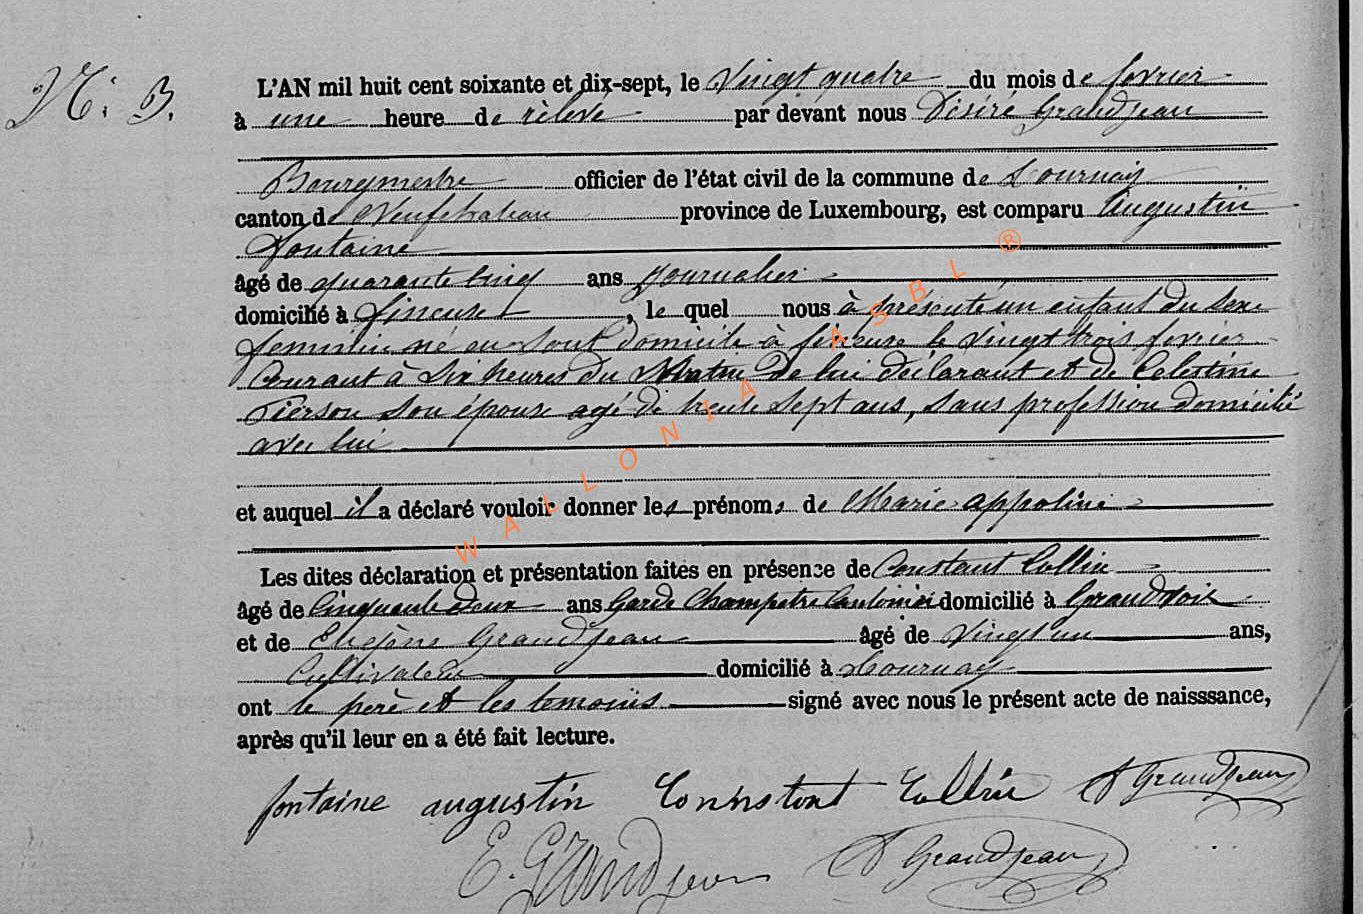 N: 3.
L'AN mil huit cent soixante et dix-sept, le Vingt quatre du mois de fevrier
à une heure de rèlevé par devant nous Désiré Grandjean
Bourgmestre officier de l'état civil de la commune de Tournay
canton de Neufchateau province de Luxembourg, est comparu Augustin
Fontaine
âgé de quarante cinq ans Journalier
domicilié à Fineuse, le quel nous à présenté un enfant du sexe
feminin né en son domicile à fineuse le vingt trois fevrier
Courant à Six heures du Matin De lui déclarant et de Celestine
Pierson son épouse agé de trente sept ans, sans profession domicilié
avec lui
et auquel il a déclaré vouloir donner les prénoms de Marie appoline
Les dites déclaration et présentation faites en présence de Constant Collin
âgé de Cinquante deux ans Garde Champetre Cantonier domicilié à Grandvoir
et de Grandjean âgé de Vingt un ans,
Cultivateur domicilié à Tournay
ont le père et les temoins signé avec nous le présent acte de naisssance,
après qu'il leur en a été fait lecture.
fontaine augustin Connstant Collin D Grandjean
E. Grandjean D Grandjean
WALLONIA ASBL ®